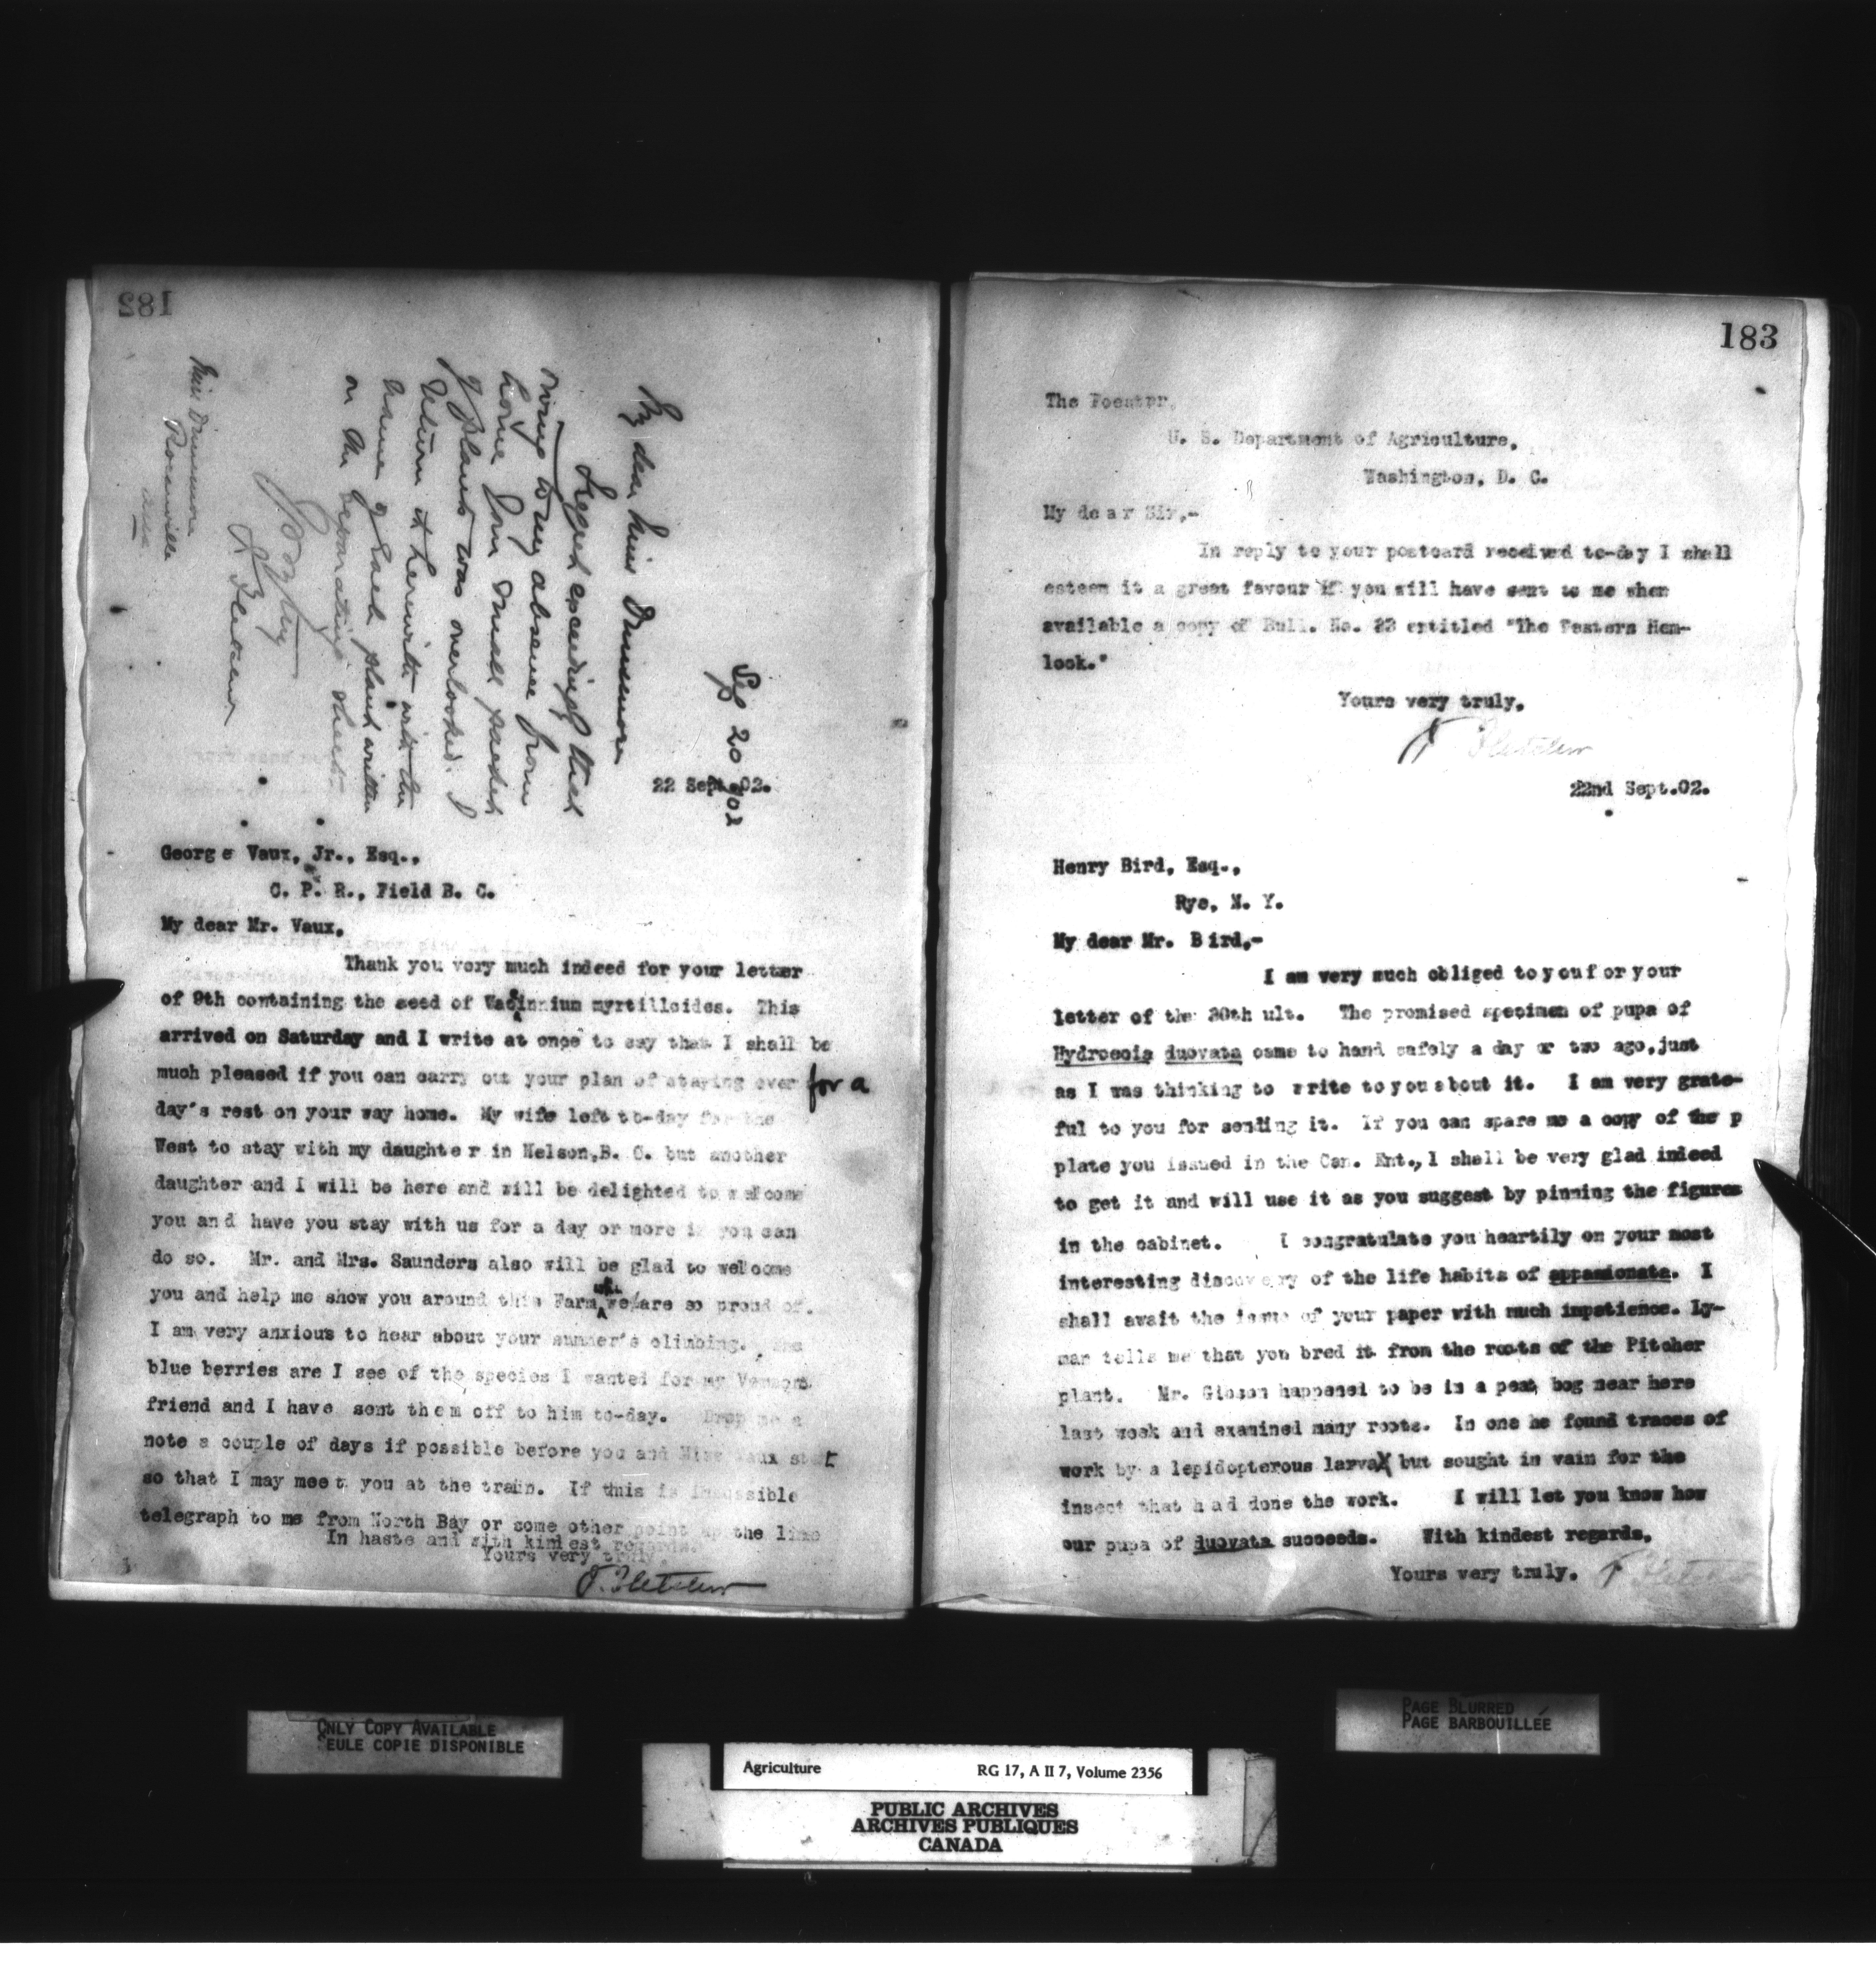 182
Sep 20 02
My dear Miss Dinsmore
I regret exceedingly that
owing to my absence from
home your small packet
of plants was overlooked. I
return it herewith with the
name of each plant written
on the separating sheet.
J. Fletcher
Miss Dinsmore
22 Sept. 02.
George Vaux, Jr., Esq.,
C. P. R., Field B. C.
My dear Mr. Vaux,
Thank you very much indeed for your letter
of 9th containing the seed of Vaccinnium myrtilloides. This
arrived on Saturday and I write at once to say that I shall be
much pleased if you can carry out your plan of staying over for a
day's rest on your way home. My wife left to-day for the
West to stay with my daughter in Nelson,B. C. but another
daughter and I will be here and will be delighted to welcome
you and have you stay with us for a day or more if you can
do so. Mr. and Mrs. Saunders also will be glad to welcome
you and help me show you around this Farm we are so proud of.
I am very anxious to hear about your summer's climbing. The
blue berries are I see of the species I wanted for my Vermont
friend and I have sent them off to him to-day. Drop me a
note a couple of days if possible before you and Miss Vaux start
so that I may meet you at the train. If this is impossible
telegraph to me from North Bay or some other point up the line
In haste and with kindest regards.
Yours very truly,
J. Fletcher
183
The Foester,
U. S. Department of Agriculture,
Washington, D. C.
My dear Sir,-
In reply to your postcard received to-day I shall
esteem it a great favour if you will have sent to me when
available a copy of Bull. No. 33 entitled "The Western Hem-
lock."
Yours very truly,
J. Fletcher
22nd Sept.02.
Henry Bird, Esq.,
Rye, N. Y.
My dear Mr. Bird,-
I am very much obliged to you for your
letter of the 30th ult. The promised specimen of pupa of
Hydroecia duovata came to hand safely a day or two ago, just
as I was thinking to write to you about it. I am very grate-
ful to you for sending it. If you can spare me a copy of the p
plate you issued in the Can. Ent., I shall be very glad indeed
to get it and will use it as you suggest by pinning the figures
in the cabinet. I congratulate you heartily on your most
interesting discovery of the life habits of appasionata. I
shall await the issue of your paper with much impatience. Ly-
man tells me that you bred it from the roots of the Pitcher
plant. Mr. Gibson happened to be in a peat bog near here
last week and examined many roots. In one he found traces of
work by a lepidopterous larva but sought in vain for the
insect that had done the work. I will let you know how
our pupa of duovata succeeds. With kindest regards,
Yours very truly. J. Fletcher
ONLY COPY AVAILABLE
SEULE COPIE DISPONIBLE
PAGE BLURRED
PAGE BARBOUILLÉE
Agriculture RG 17, A II 7, Volume 2356
PUBLIC ARCHIVES
ARCHIVES PUBLIQUES
CANADA